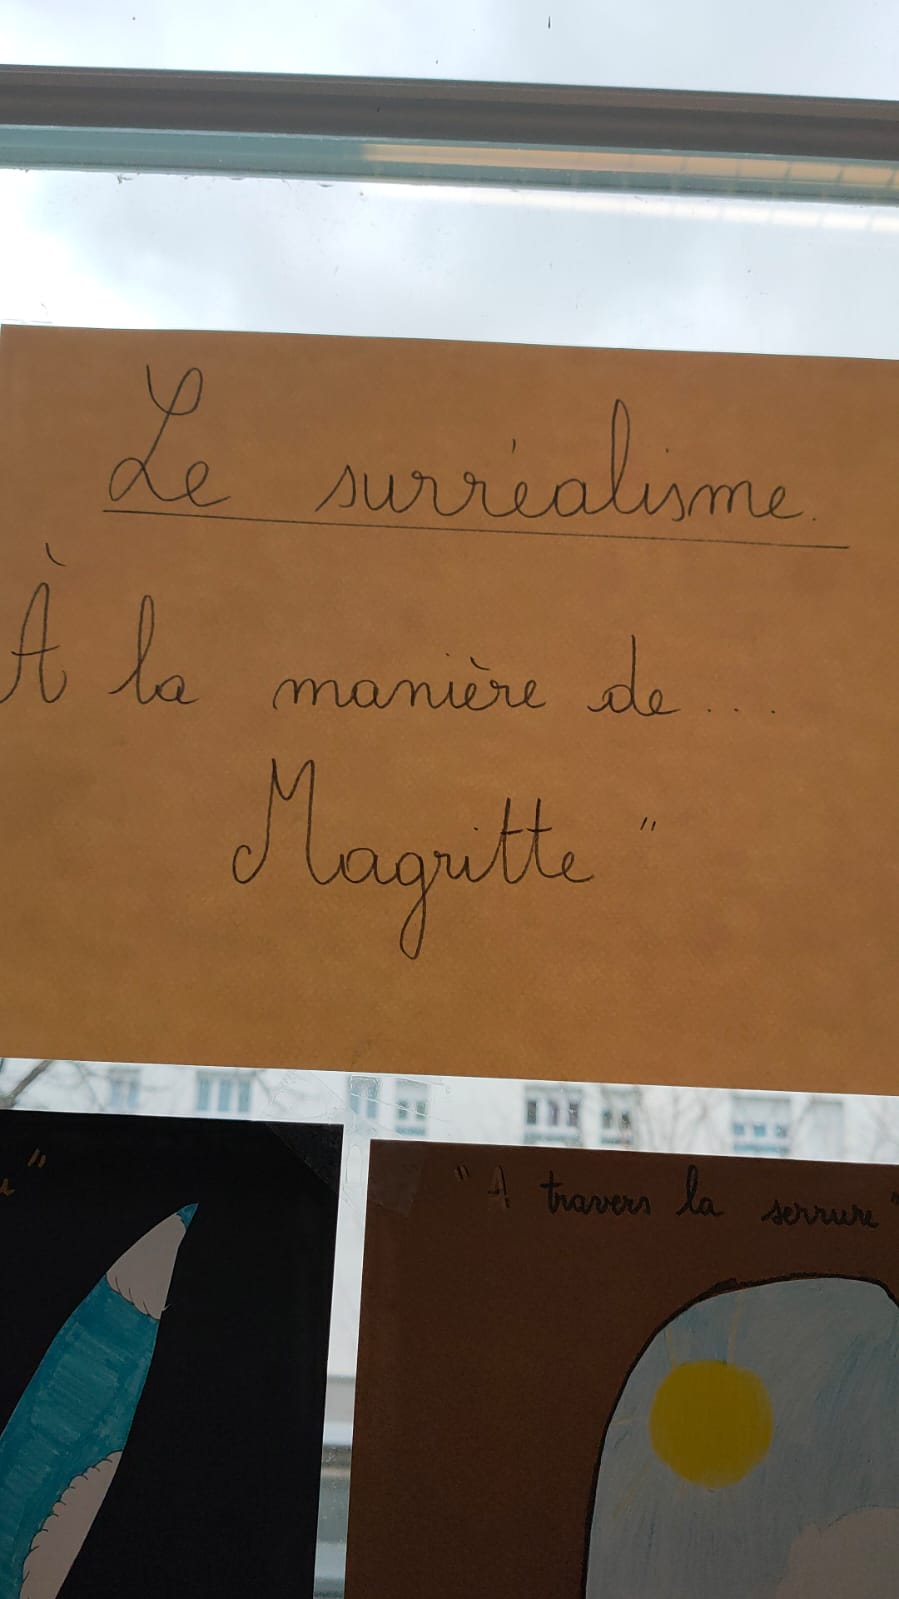 Le surréalisme.
À la manière de...
Magritte "
"
"A travers la serrure"